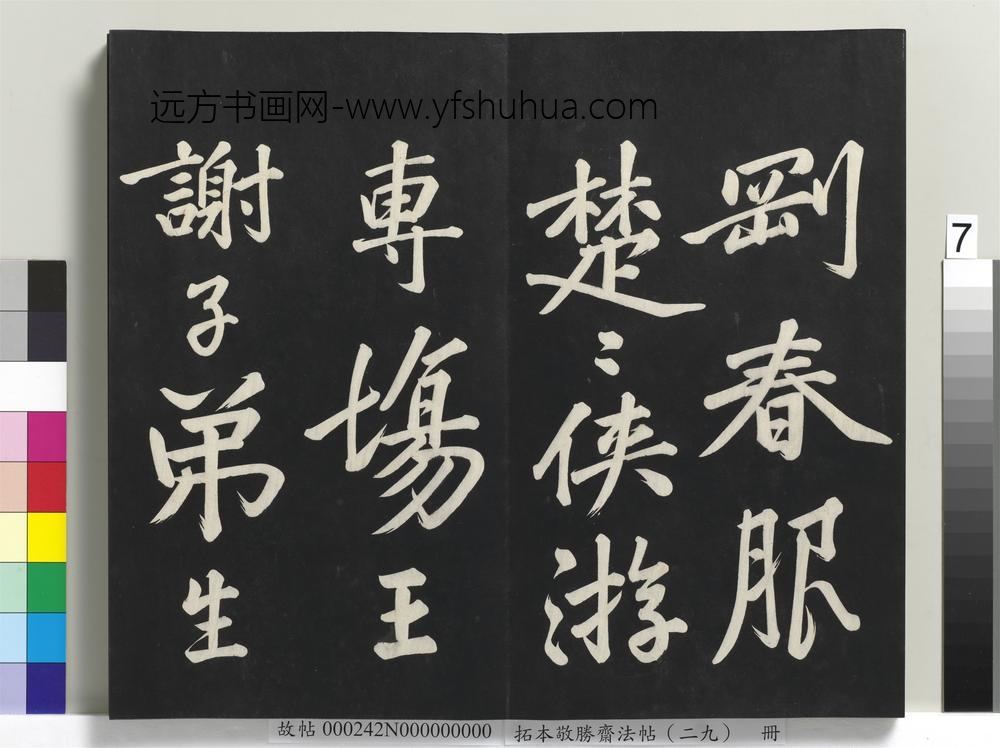 远方书画网-www.yfshuhua.com
剛春服
楚〻俠游
専場王
謝子弟生
7
故帖 000242N000000000
拓本敬勝齋法帖（二九） 冊